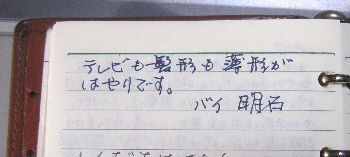 テレビも髪形も薄形が
はやりです。
バイ 明石